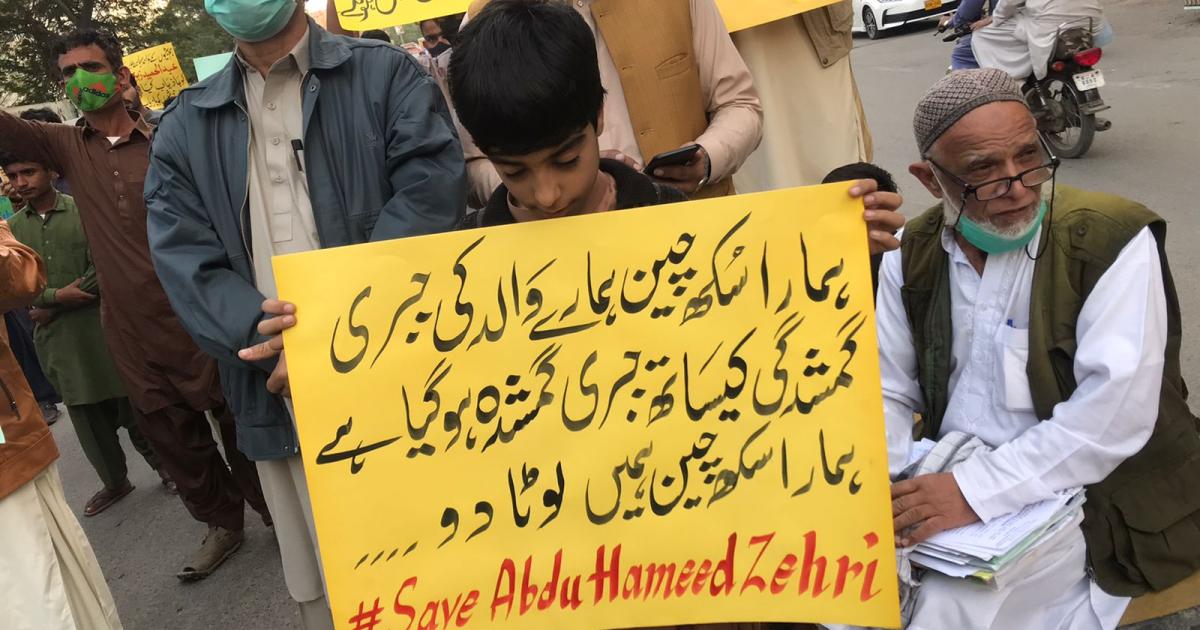 ہمارا سکھ چین ہمارے والد کی جبری
گمشدگی کیساتھ جبری گمشدہ ہوگیا ہے
ہمارا سکھ چین ہمیں لوٹا دو ....
#Save Abdu Hameed Zehri